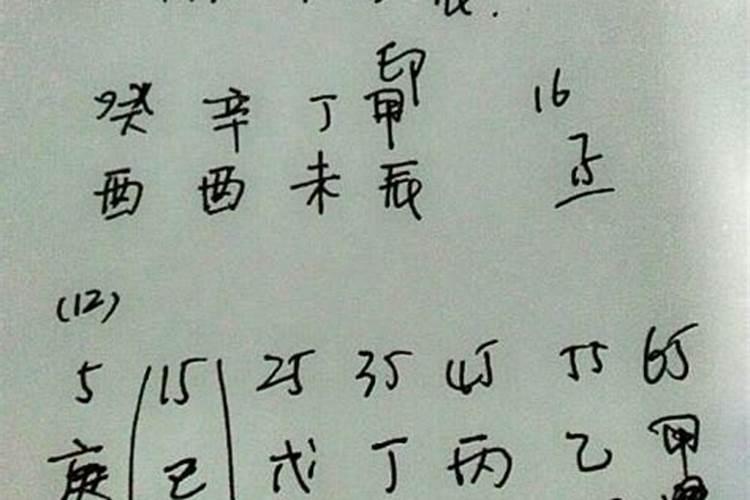 印
癸 辛 丁 甲 16
酉 酉 未 辰 15
(12)
5 15 25 35 45 55 65
庚 己 戊 丁 丙 乙 甲